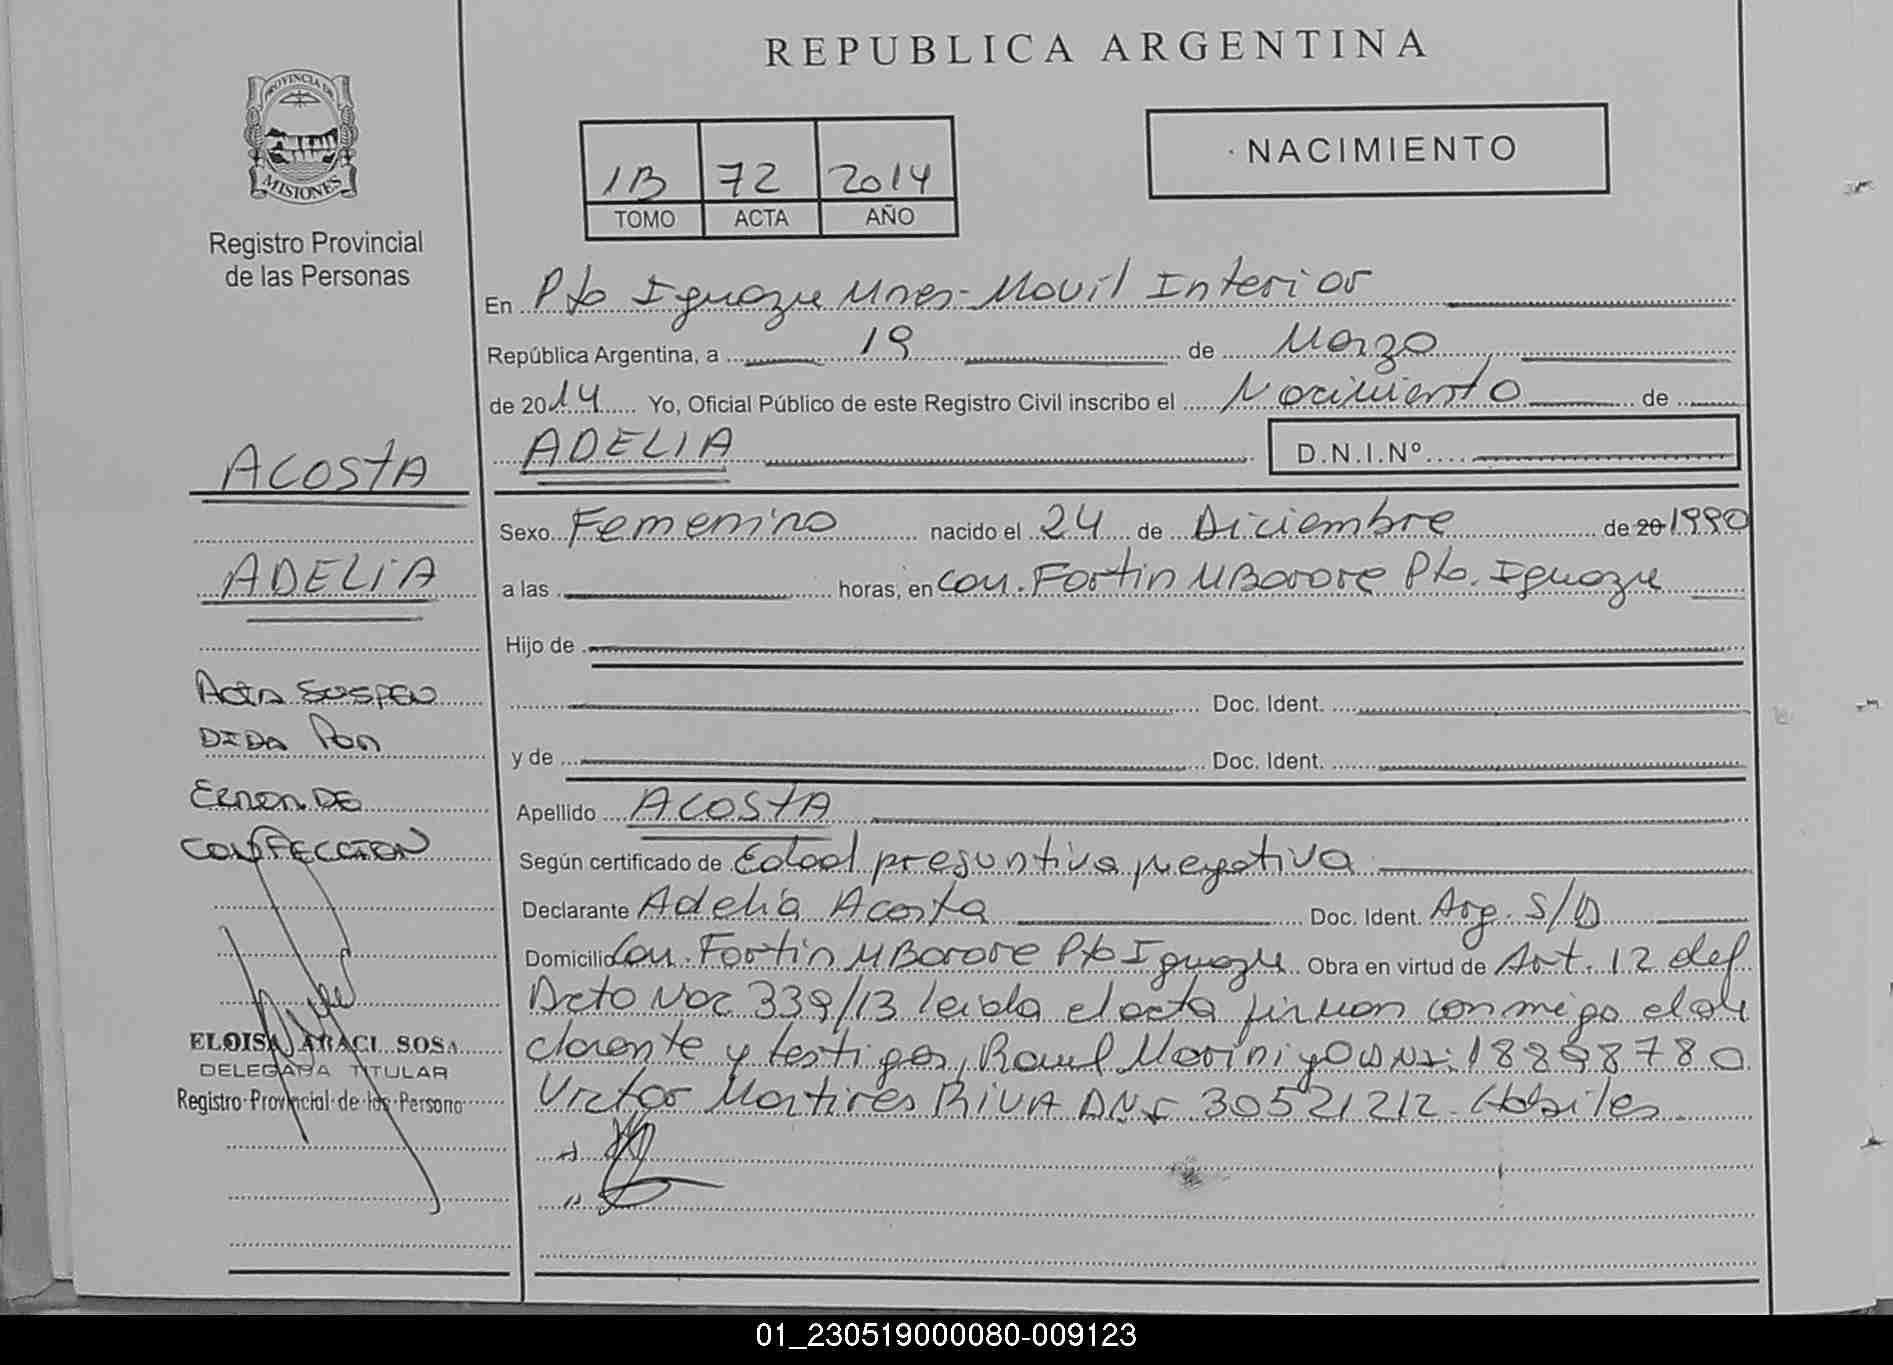 REPUBLICA ARGENTINA
PROVINCIA DE
MISIONES
Registro Provincial
de las Personas
1B 72 2014
TOMO ACTA AÑO
NACIMIENTO
En Pto Iguazu Mnes-Movil Interior
República Argentina, a 19 de Marzo
de 2014 Yo, Oficial Público de este Registro Civil inscribo el Nacimiento de
ADELIA D.N.I.Nº
Sexo Femenino nacido el 24 de Diciembre de 20 1990
a las horas, en Com. Fortin MBorore Pto. Iguazu
Hijo de
Doc. Ident.
y de Doc. Ident.
Apellido ACOSTA
Según certificado de Edad presuntiva negativa
Declarante Adelia Acosta Doc. Ident. Arg. S/D
Domicilio Com. Fortin MBorore Pto Iguazu Obra en virtud de Art. 12 del
Dcto Nac 339/13 leida el acta firman conmigo el de
clarante y testigos, Raul Marini DNI: 18898780
Victor Martires RIVA DNI 30521212. Habiles
ACOSTA
ADELIA
ACTA SUSPEN
DIDA POR
ERROR DE
CONFECCION
ELOISA ARACI SOSA
DELEGADA TITULAR
Registro Provincial de las Persona
01_230519000080-009123